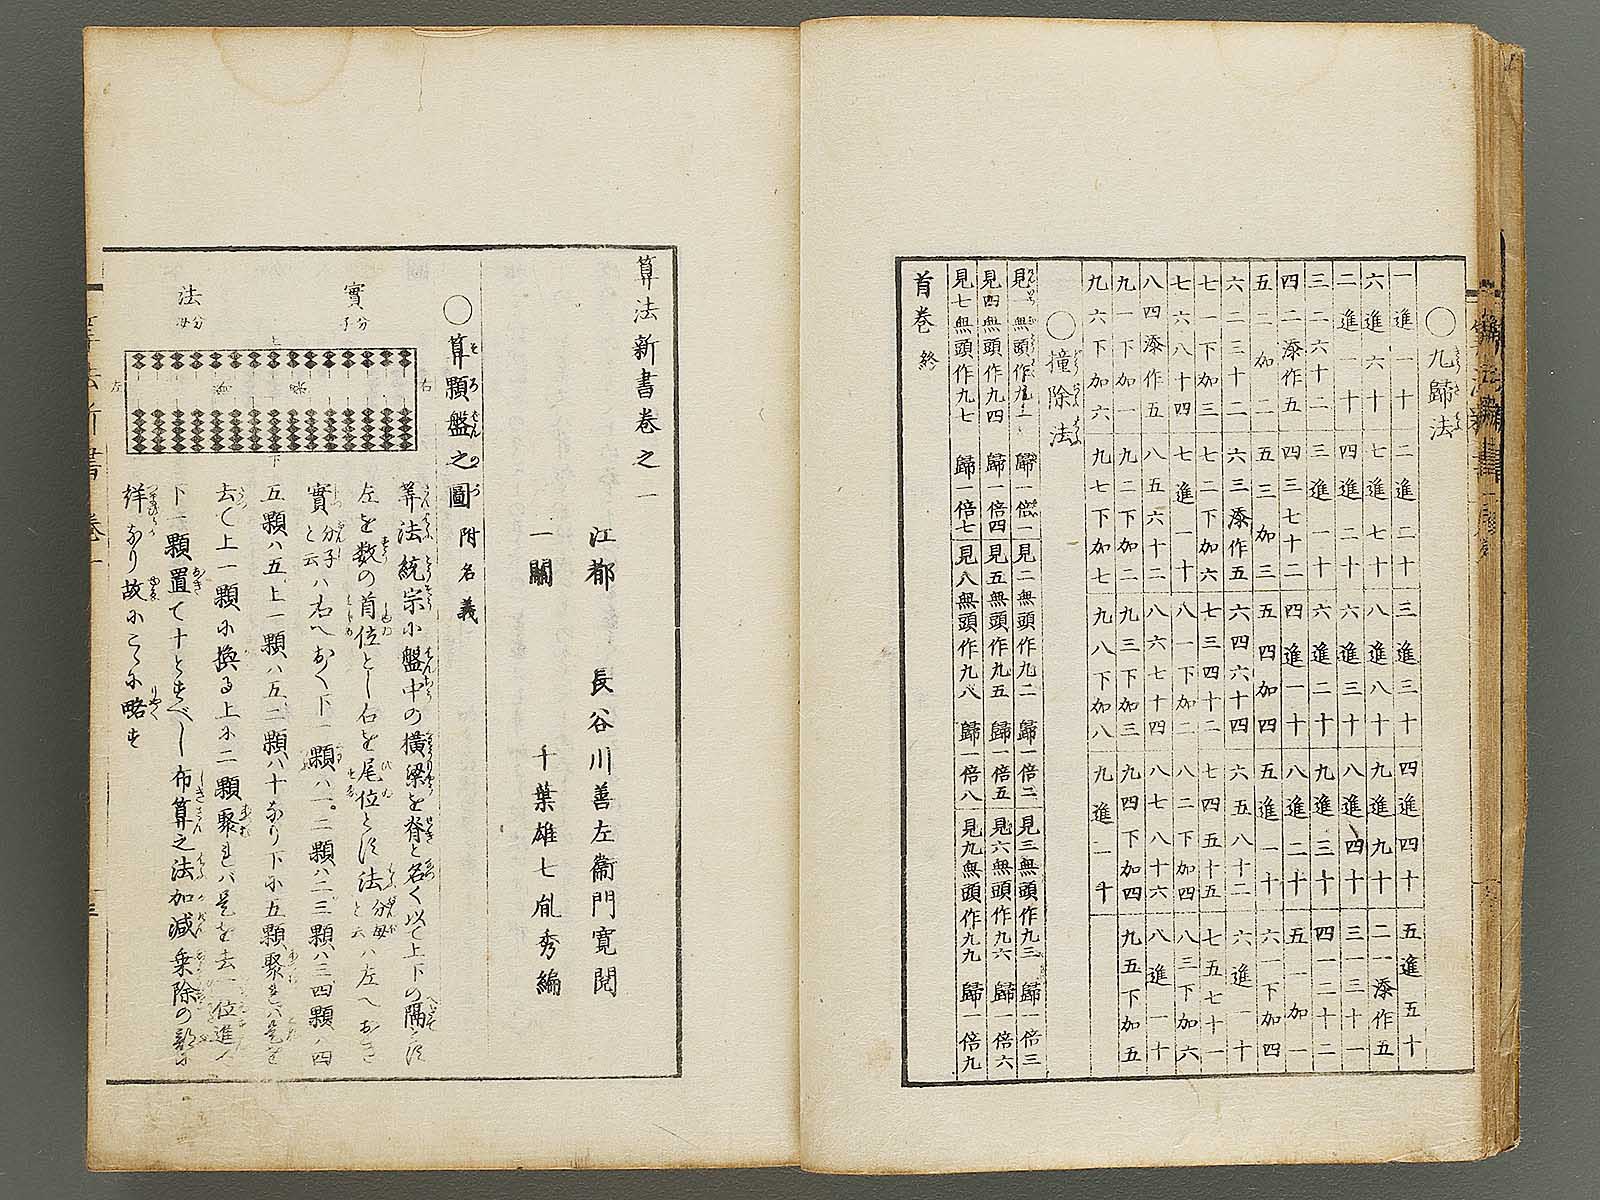 〇九歸法
一進一十 二進二十 三進三十 四進四十 五進五十
六進六十 七進七十 八進八十 九進九十 二一添作五
二進一十 四進二十 六進三十 八進四十 三一三十一
三二六十二 三進一十 六進二十 九進三十 四一二十二
四二添作五 四三七十二 四進一十 八進二十 五一加一
五二加二 五三加三 五四加四 五進一十 六一下加四
六二三十二 六三添作五 六四六十四 六五八十二 六進一十
七一下加三 七二下加六 七三四十二 七四五十五 七五七十一
七六八十四 七進一十 八一下加二 八二下加四 八三下加六
八四添作五 八五六十二 八六七十四 八七八十六 八進一十
九一下加一 九二下加二 九三下加三 九四下加四 九五下加五
九六下加六 九七下加七 九八下加八 九進一十
〇撞除法
見一無頭作九一 歸一倍一 見二無頭作九二 歸一倍二 見三無頭作九三 歸一倍三
見四無頭作九四 歸一倍四 見五無頭作九五 歸一倍五 見六無頭作九六 歸一倍六
見七無頭作九七 歸一倍七 見八無頭作九八 歸一倍八 見九無頭作九九 歸一倍九
首巻 終
算法新書巻之一
江都 長谷川善左衞門寛閲
一關 千葉雄七胤秀編
〇算顆盤之圖 附名義
實 分子
法 分母
右
左
上
下
梁
算法統宗に盤中の橫梁を脊と名く以て上下の隔とす
左を数の首位とし右を尾位とす法分母と云ハ左へおき
實分子と云ハ右へおく下一顆ハ一。二顆ハ二。三顆ハ三四顆ハ四
五顆ハ五、上一顆ハ五、二顆ハ十なり下に五顆聚れハ是を
去て上一顆に換る上に二顆聚れハ是を去一位進て
下一顆置て十とすべし布算之法加減乗除の部に
詳なり故にこゝに略す